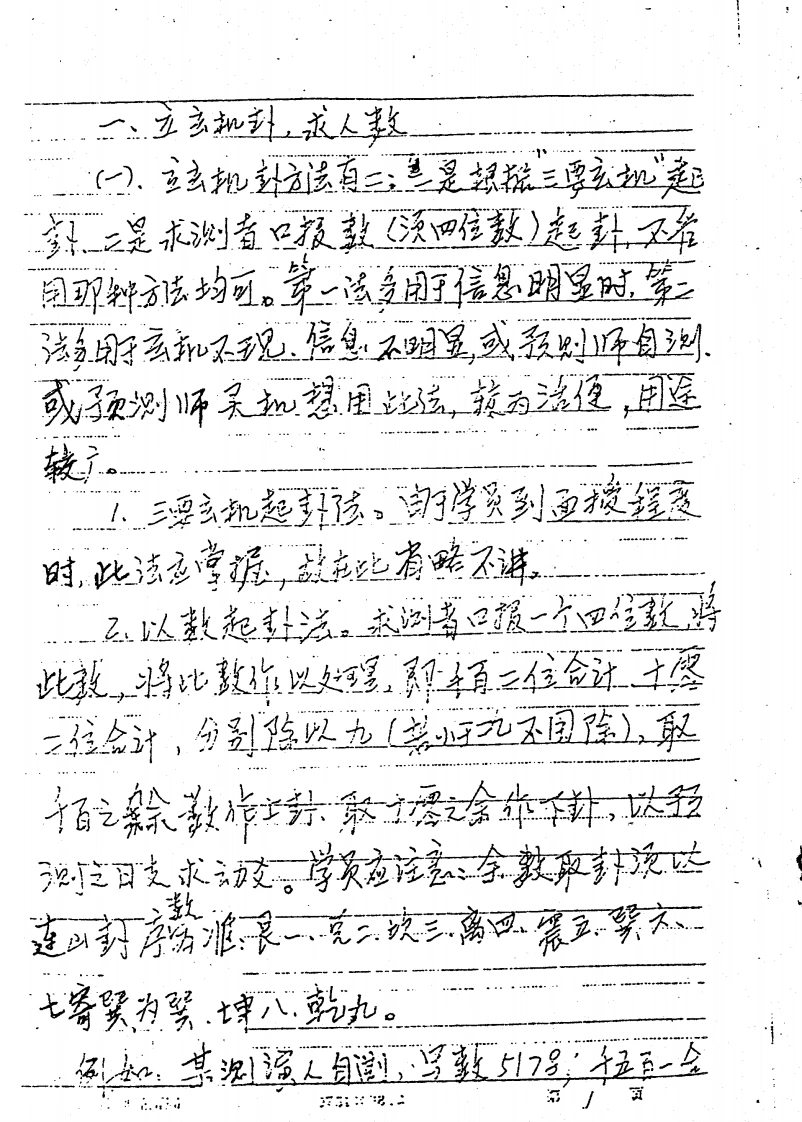 一、立玄机卦，求人数
(一)、立玄机卦方法有二：一是根据"三要玄机"起
卦、二是求测者口报数(须四位数)起卦，不管
用那种方法均可。第一法多用于信息明显时，第二
法多用于玄机不现、信息不明显，或预测师自测，
或预测师灵机想用此法，较为活便，用途
较广。
1. 三要玄机起卦法。由于学员到面授程度
时，此法应掌握，故在此省略不讲。
2. 以数起卦法。求测者口报一个四位数，将
此数，将此数作以处理，即千百二位合计，十零
二位合计，分别除以九(若小于九不用除)，取
千百之余数作上卦、取十零之余作下卦，以预
测之日支求动爻。学员应注意：余数取卦须以
连山卦序数为准：艮一、兑二、坎三、离四、震五、巽六、
七寄巽为巽、坤八、乾九。
例如：某测演人自测，写数5178；千五百一合
第 1 页